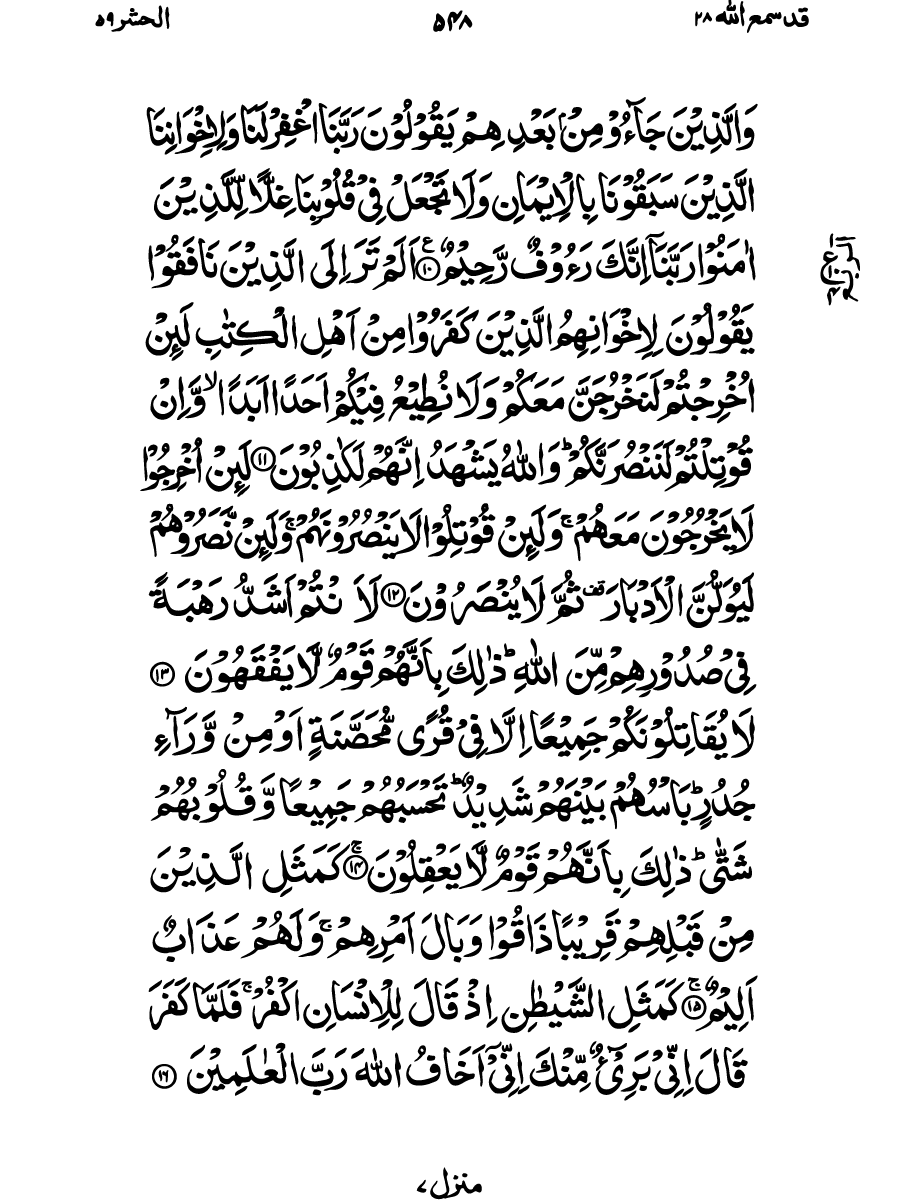 قد سمع الله ۲۸
۵۴۸
الحشر ۵۹
وَالَّذِيْنَ جَآءُوْ مِنْۢ بَعْدِ هِمْ يَقُوْلُوْنَ رَبَّنَا اغْفِرْ لَنَا وَلِاِخْوَانِنَا
الَّذِيْنَ سَبَقُوْنَا بِالْاِيْمَانِ وَلَا تَجْعَلْ فِيْ قُلُوْبِنَا غِلًّا لِّلَّذِيْنَ
اٰمَنُوْا رَبَّنَاۤ اِنَّكَ رَءُوْفٌ رَّحِيْمٌ ۧ۝۱۰ اَلَمْ تَرَ اِلَى الَّذِيْنَ نَافَقُوْا
يَقُوْلُوْنَ لِاِخْوَانِهِمُ الَّذِيْنَ كَفَرُوْا مِنْ اَهْلِ الْكِتٰبِ لَىِٕنْ
اُخْرِجْتُمْ لَنَخْرُجَنَّ مَعَكُمْ وَلَا نُطِيْعُ فِيْكُمْ اَحَدًا اَبَدًا ۙ وَّاِنْ
قُوْتِلْتُمْ لَنَنْصُرَنَّكُمْ ؕ وَاللّٰهُ يَشْهَدُ اِنَّهُمْ لَكٰذِبُوْنَ ۝۱۱ لَىِٕنْ اُخْرِجُوْا
لَا يَخْرُجُوْنَ مَعَهُمْ ۚ وَلَىِٕنْ قُوْتِلُوْا لَا يَنْصُرُوْنَهُمْ ۚ وَلَىِٕنْ نَّصَرُوْهُمْ
لَيُوَلُّنَّ الْاَدْبَارَ ۫ ثُمَّ لَا يُنْصَرُوْنَ ۝۱۲ لَاَ نْتُمْ اَشَدُّ رَهْبَةً
فِيْ صُدُوْرِهِمْ مِّنَ اللّٰهِ ؕ ذٰلِكَ بِاَنَّهُمْ قَوْمٌ لَّا يَفْقَهُوْنَ ۝۱۳
لَا يُقَاتِلُوْنَكُمْ جَمِيْعًا اِلَّا فِيْ قُرًى مُّحَصَّنَةٍ اَوْ مِنْ وَّرَآءِ
جُدُرٍ ؕ بَاْسُهُمْ بَيْنَهُمْ شَدِيْدٌ ؕ تَحْسَبُهُمْ جَمِيْعًا وَّقُلُوْبُهُمْ
شَتّٰى ؕ ذٰلِكَ بِاَنَّهُمْ قَوْمٌ لَّا يَعْقِلُوْنَ ۚ۝۱۴ كَمَثَلِ الَّذِيْنَ
مِنْ قَبْلِهِمْ قَرِيْبًا ذَاقُوْا وَبَالَ اَمْرِهِمْ ۚ وَلَهُمْ عَذَابٌ
اَلِيْمٌ ۚ۝۱۵ كَمَثَلِ الشَّيْطٰنِ اِذْ قَالَ لِلْاِنْسَانِ اكْفُرْ ۚ فَلَمَّا كَفَرَ
قَالَ اِنِّيْ بَرِيْٓءٌ مِّنْكَ اِنِّيْۤ اَخَافُ اللّٰهَ رَبَّ الْعٰلَمِيْنَ ۝۱۶
منزل ۷